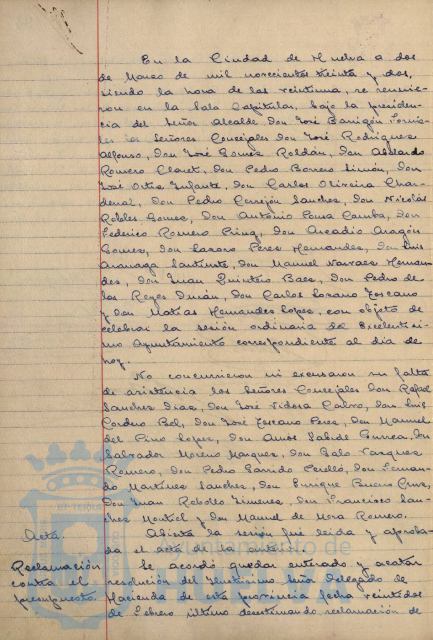 En la Ciudad de Huelva a dos
de Marzo de mil novecientos treinta y dos,
siendo la hora de las veintiuna, se reunie-
ron en la Sala Capitular, bajo la presiden-
cia del Señor Alcalde Don José Barrigón Fornie-
les los Señores Concejales Don José Rodríguez
Alfonso, Don José Gomez Roldán, Don Abelardo
Romero Claret, Don Pedro Borrero Limón, Don
José Ortiz Infante, Don Carlos Oliveira Chan-
denal, Don Pedro Cerejón Sanchez, Don Nicolás
Robles Gomez, Don Antonio Pousa Camba, Don
Federico Romero Ping, Don Arcadio Aragón
Gomez, Don Lazaro Perez Hernandez, Don Luis
Aranaga Santiuste, Don Manuel Narvaez Hernan-
dez, Don Juan Quintero Baez, Don Pedro de
los Reyes Durán, Don Carlos Lozano Toscano
y Don Matías Hernandez Lopez, con objeto de
celebrar la sesión ordinaria del Excelentísi-
mo Ayuntamiento correspondiente al día de
hoy.
No concurrieron ni excusaron su falta
de asistencia los Señores Concejales Don Rafael
Sanchez Diaz, Don José Vidosa Calvo, Don Luis
Cordero Bel, Don José Toscano Perez, Don Manuel
del Pino Lopez, Don Amos Sabido Gurrea, Don
Salvador Moreno Marquez, Don Galo Vazquez
Romero, Don Pedro Garrido Perelló, Don Fernan-
do Martinez Sanchez, Don Enrique Bueno Cruz,
Don Juan Rebollo Jimenez, Don Francisco San-
chez Montiel y Don Manuel de Mora Romero.
Acta. Abierta la sesión fué leida y aproba-
da el acta de la anterior.
Reclamación Se acordó quedar enterado y acatar
contra el resolución del Ilustrísimo Señor Delegado de
presupuesto. Hacienda de esta provincia fecha veintidos
de Febrero último desestimando reclamación de
Ayuntamiento de